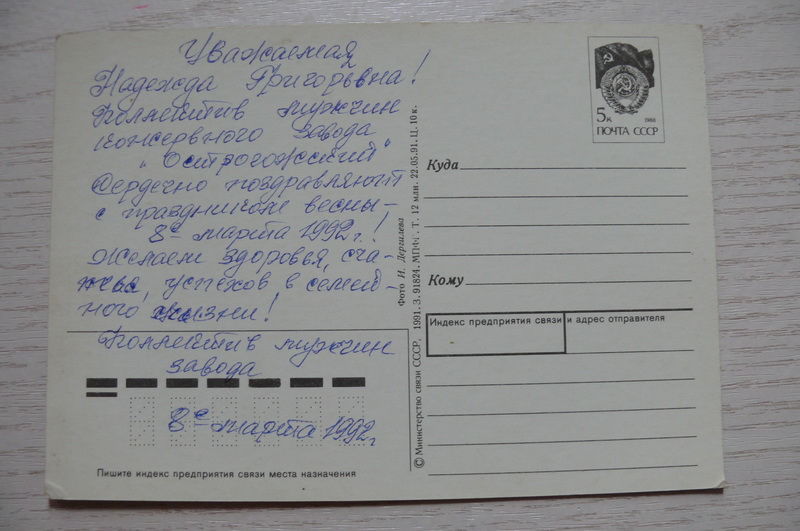 Уважаемая
Надежда Григорьвна!
Коллектив мужчин
консервного завода
"Острогожский"
Сердечно поздравляют
с праздником весны-
8е марта 1992г.!
Желаем здоровья, сча-
тья, успехов в семей-
ного жизни!
Коллектив мужчин
завода
8е марта 1992г
Пишите индекс предприятия связи места назначения
© Министерство связи СССР, 1991. З. 91824. МПФГ. Т. 12 млн. 22.05.91. Ц. 10 к.
Фото И. Дергилева
5к 1988
ПОЧТА СССР
Куда
Кому
Индекс предприятия связи и адрес отправителя